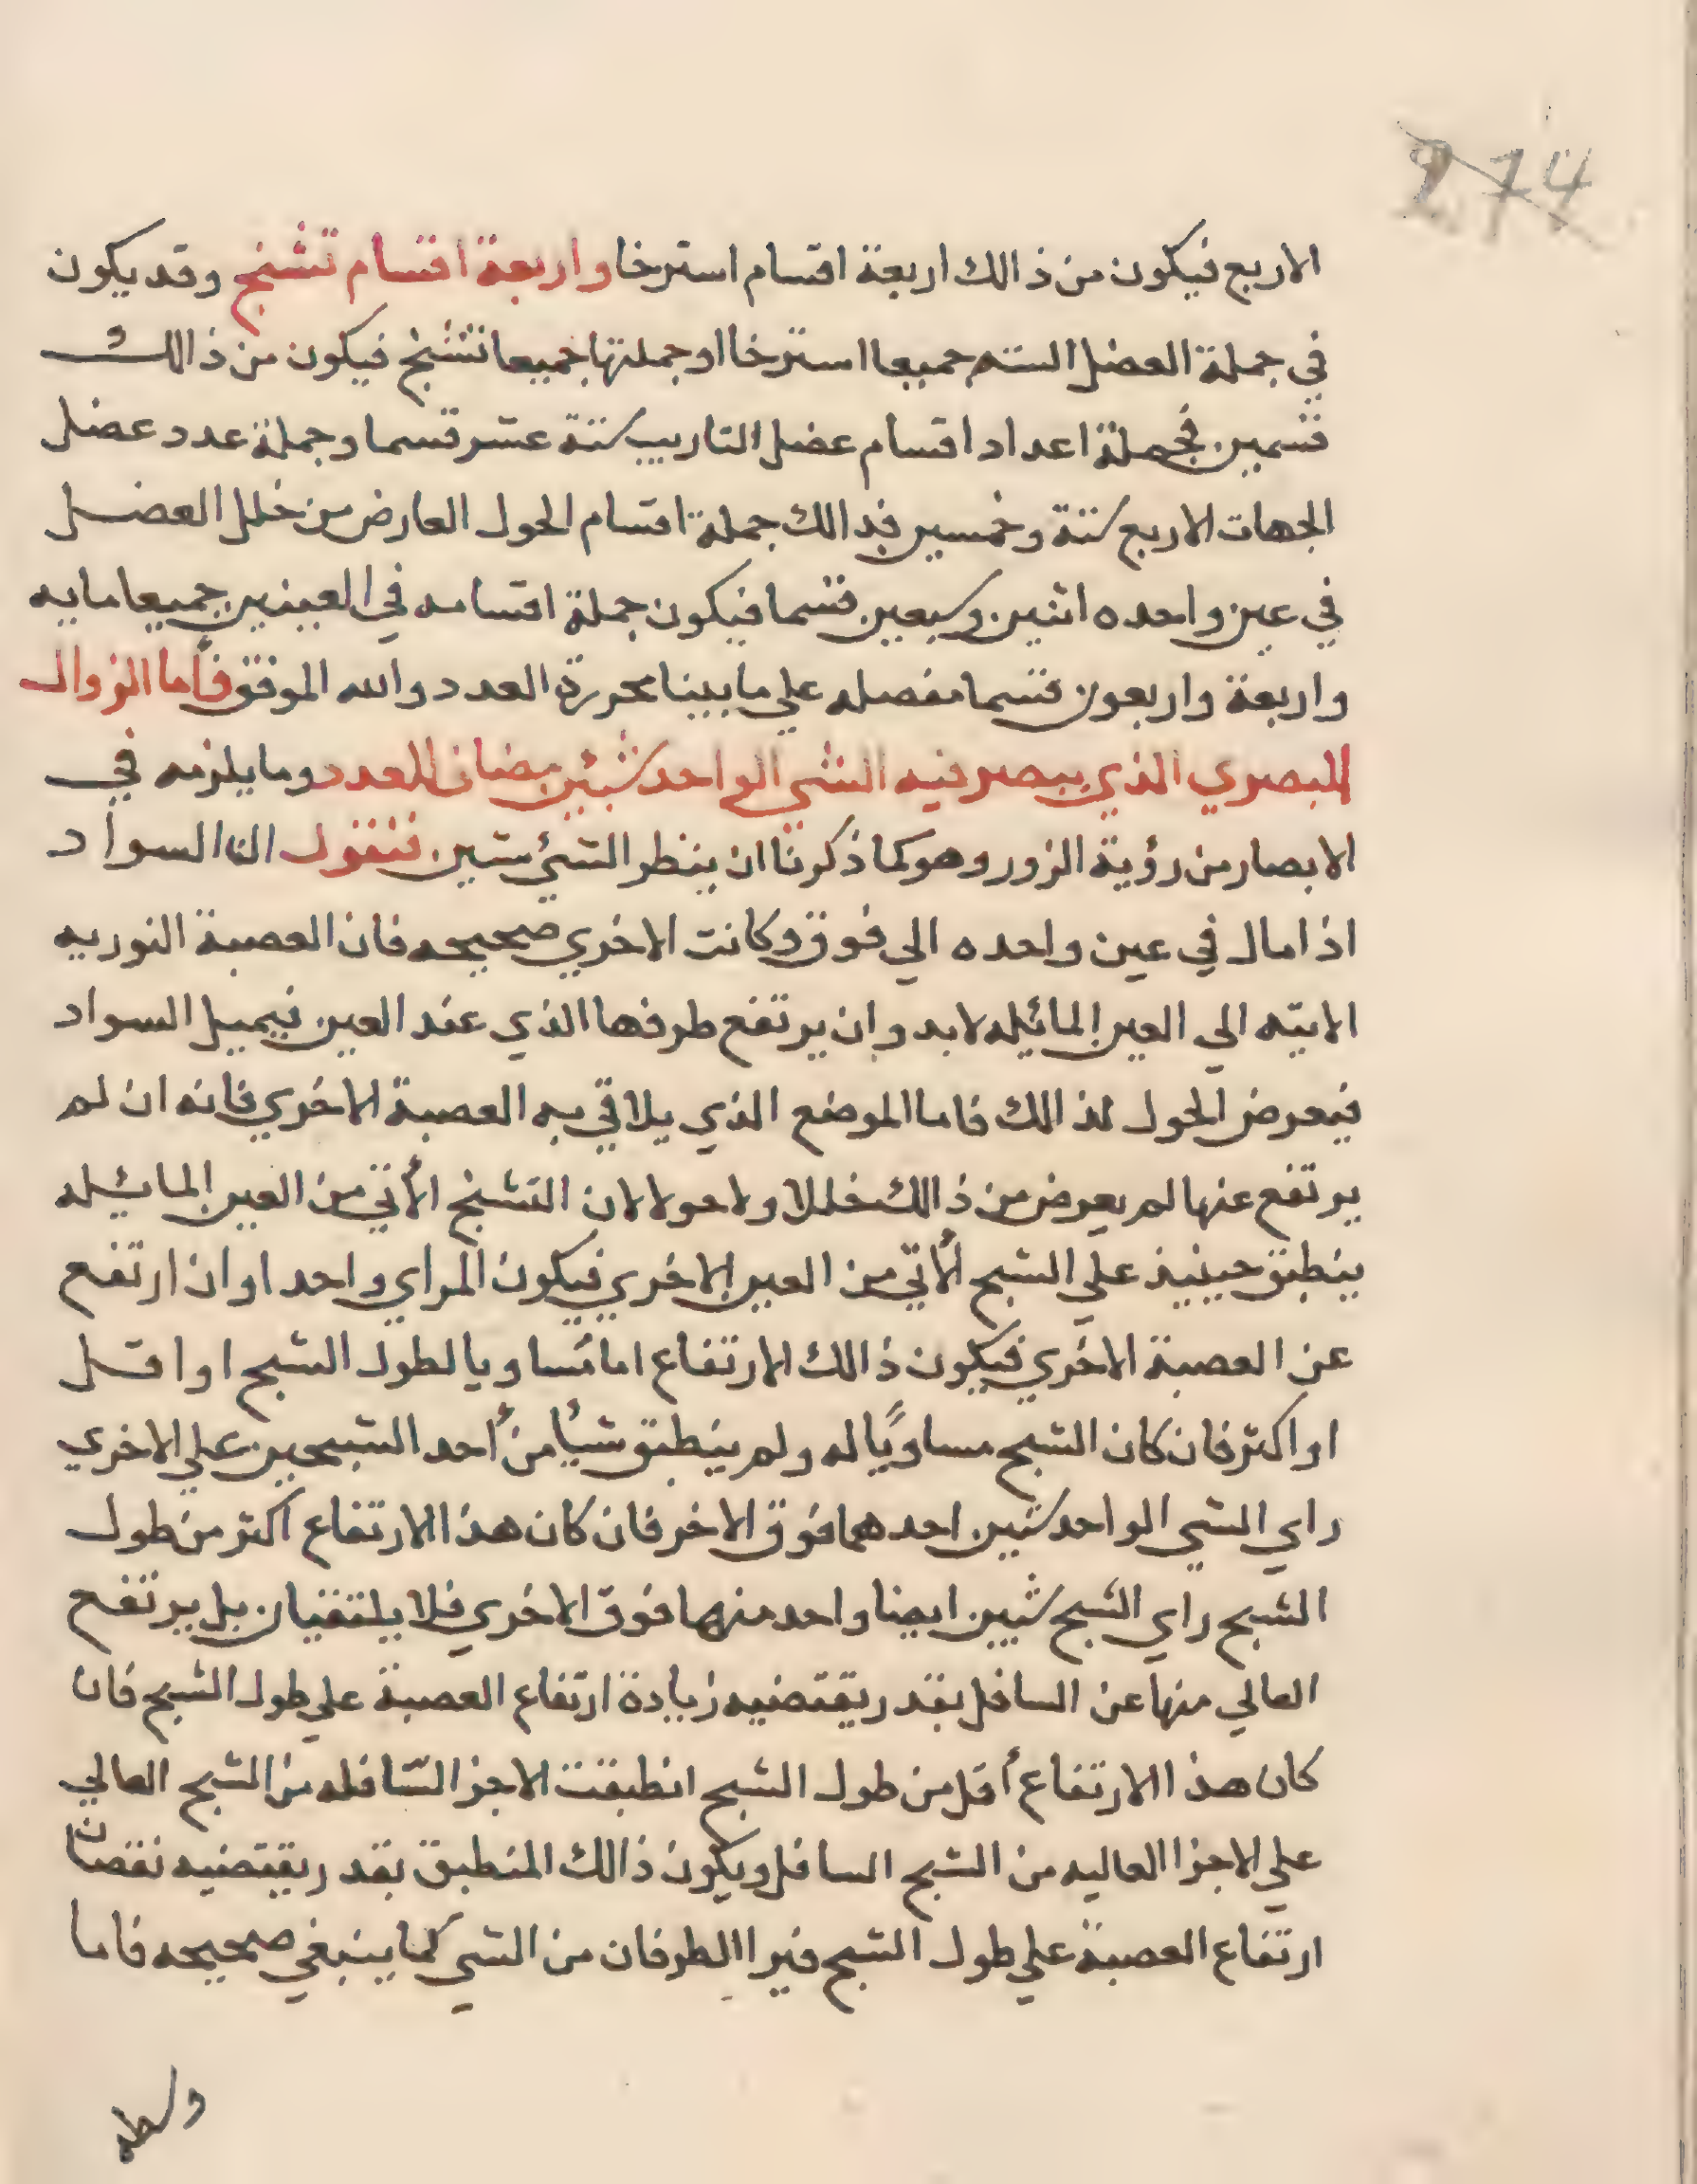 274
الاربع فيكون من ذالك اربعة اقسام استرخا واربعة اقسام تشنج وقد يكون
في جملة العضل السته جميعا استرخا او جملتها جميعا تشنج فيكون من ذالك
قسمين فجملة اعداد اقسام عضل التاريب ستة عشر قسما وجملة عدد عضل
الجهات الاربع ستة وخمسين فذالك جملة اقسام الحول العارض من خلل العضل
في عين واحده اثنين وسبعين قسما فيكون جملة اقسامه في العينين جميعا مايه
واربعة واربعون قسما مفصله علي ما بينا محررة العدد والله الموفق فأما الزوال
البصري الذي يبصر فيه الشي الواحد شيئين بضان للعدد وما يلزمه في
الابصار من رؤية الزور وهو كما ذكرنا ان ينظر الشئ شين فنقول ان السواد
اذا مال في عين واحده الي فوق وكانت الاخري صحيحه فان العصبة النوريه
الاتيه الي العين المائيله لابد وان يرتفع طرفها الذي عند العين فيميل السواد
فيعرض الحول لذالك فاما الموضع الذي يلاقي به العصبة الاخري فانه ان لم
يرتفع عنها لم يعرض من ذالك خللا ولا حولا لان التشنج الأتي من العين المائيله
ينطبق حينيذ علي الشبح الأتي من العين الاخري فيكون المراي واحد او ان ارتفع
عن العصبة الاخري فيكون ذالك الارتفاع اما مساويا لطول الشبح او اقل
او اكثر فان كان الشبح مساويًا له ولم ينطبق شيأ من أحد الشبحين علي الاخري
راي الشي الواحد شين احدهما فوق الاخر فان كان هذا الارتفاع اكثر من طول
الشبح راي الشبح شين ايضا واحد منهما فوق الاخري فلا يلتقيان بل يرتفع
العالي منها عن السافل بقدر يقتضيه زيادة ارتفاع العصبة علي طول الشبح فان
كان هذا الارتفاع أقل من طول الشبح انطبقت الاجزا السافله من الشبح العالي
علي الاجزا العاليه من الشبح السافل ويكون ذالك المنطبق بقدر يقتضيه نقصان
ارتفاع العصبة علي طول الشبح فيرا الطرفان من الشي كما ينبغي صحيحه فاما
وسطه